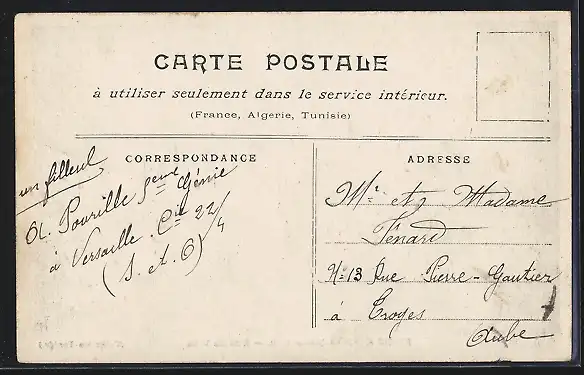 CARTE POSTALE
à utiliser seulement dans le service intérieur.
(France, Algerie, Tunisie)
CORRESPONDANCE
un filleul
A. Pourille 5eme Génie
à Versaille. Cie 22/4
(S. et O)
ADRESSE
Mr et Madame
Fenard
No 13 Rue Pierre-Gautier
à Troyes
Aube